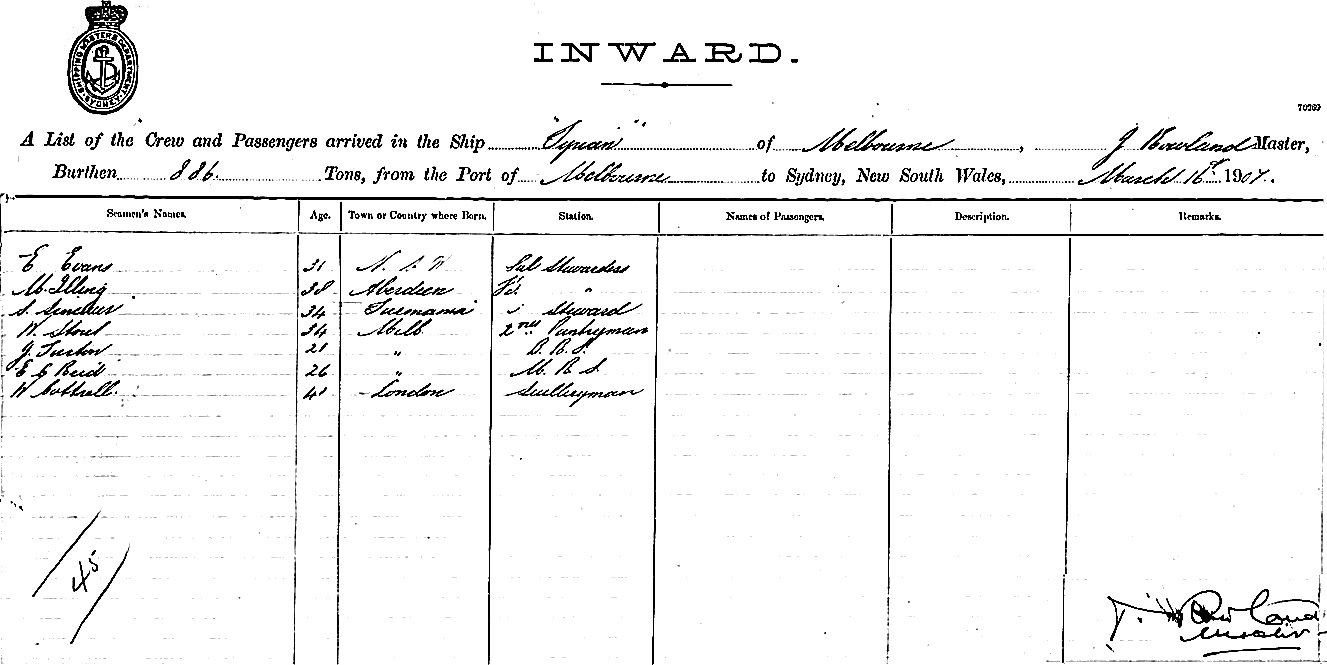 SHIPPING MASTER'S DEPARTMENT SYDNEY
INWARD.
70269
A List of the Crew and Passengers arrived in the Ship "Tyrian" of Melbourne, J Rowland Master,
Burthen 886. Tons, from the Port of Melbourne to Sydney, New South Wales, March 16th 1904.
Seamen's Names. Age. Town or Country where Born. Station. Names of Passengers. Description. Remarks.
E Evans 31 N. S. W Stewardess
M. Illing 38 Aberdeen "
S. Sinclair 34 Tasmania Steward
W. 34 Melb 2nd Pantryman
J. " B. R. S.
E E Reid 26 " M. R S.
W Cottrell. London Sculleryman
45
Rowland
Master